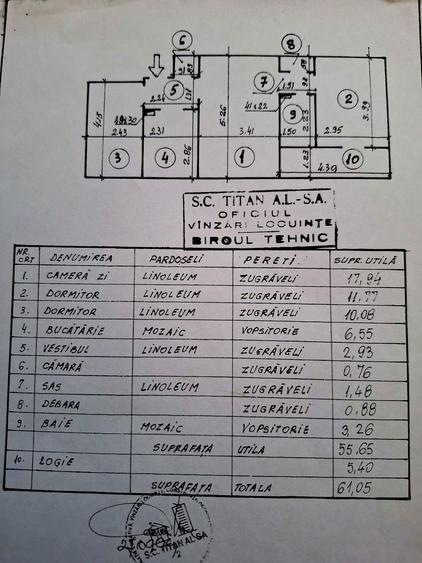 6
8
5
7
2
3
4
1
9
10
2.24
4.15
2.43
2.31
2.86
5.26
3.41
1.51
1.50
2.23
2.95
3.99
1.23
4.39
S.C. TITAN A.L.-S.A.
OFICIUL
VÎNZĂRI LOCUINȚE
BIROUL TEHNIC
NR. CRT DENUMIREA PARDOSELI PEREȚI SUPR. UTILĂ
1. CAMERĂ ZI LINOLEUM ZUGRĂVELI 17,94
2. DORMITOR LINOLEUM ZUGRĂVELI 11,77
3. DORMITOR LINOLEUM ZUGRĂVELI 10,08
4. BUCĂTĂRIE MOZAIC VOPSITORIE 6,55
5. VESTIBUL LINOLEUM ZUGRĂVELI 2,93
6. CĂMARĂ ZUGRĂVELI 0,76
7. SAS LINOLEUM ZUGRĂVELI 1,48
8. DEBARA ZUGRĂVELI 0,88
9. BAIE MOZAIC VOPSITORIE 3,26
SUPRAFAȚA UTILA 55,65
10. LOGIE 5,40
SUPRAFAȚA TOTALA 61,05
S.C. TITAN AL SA